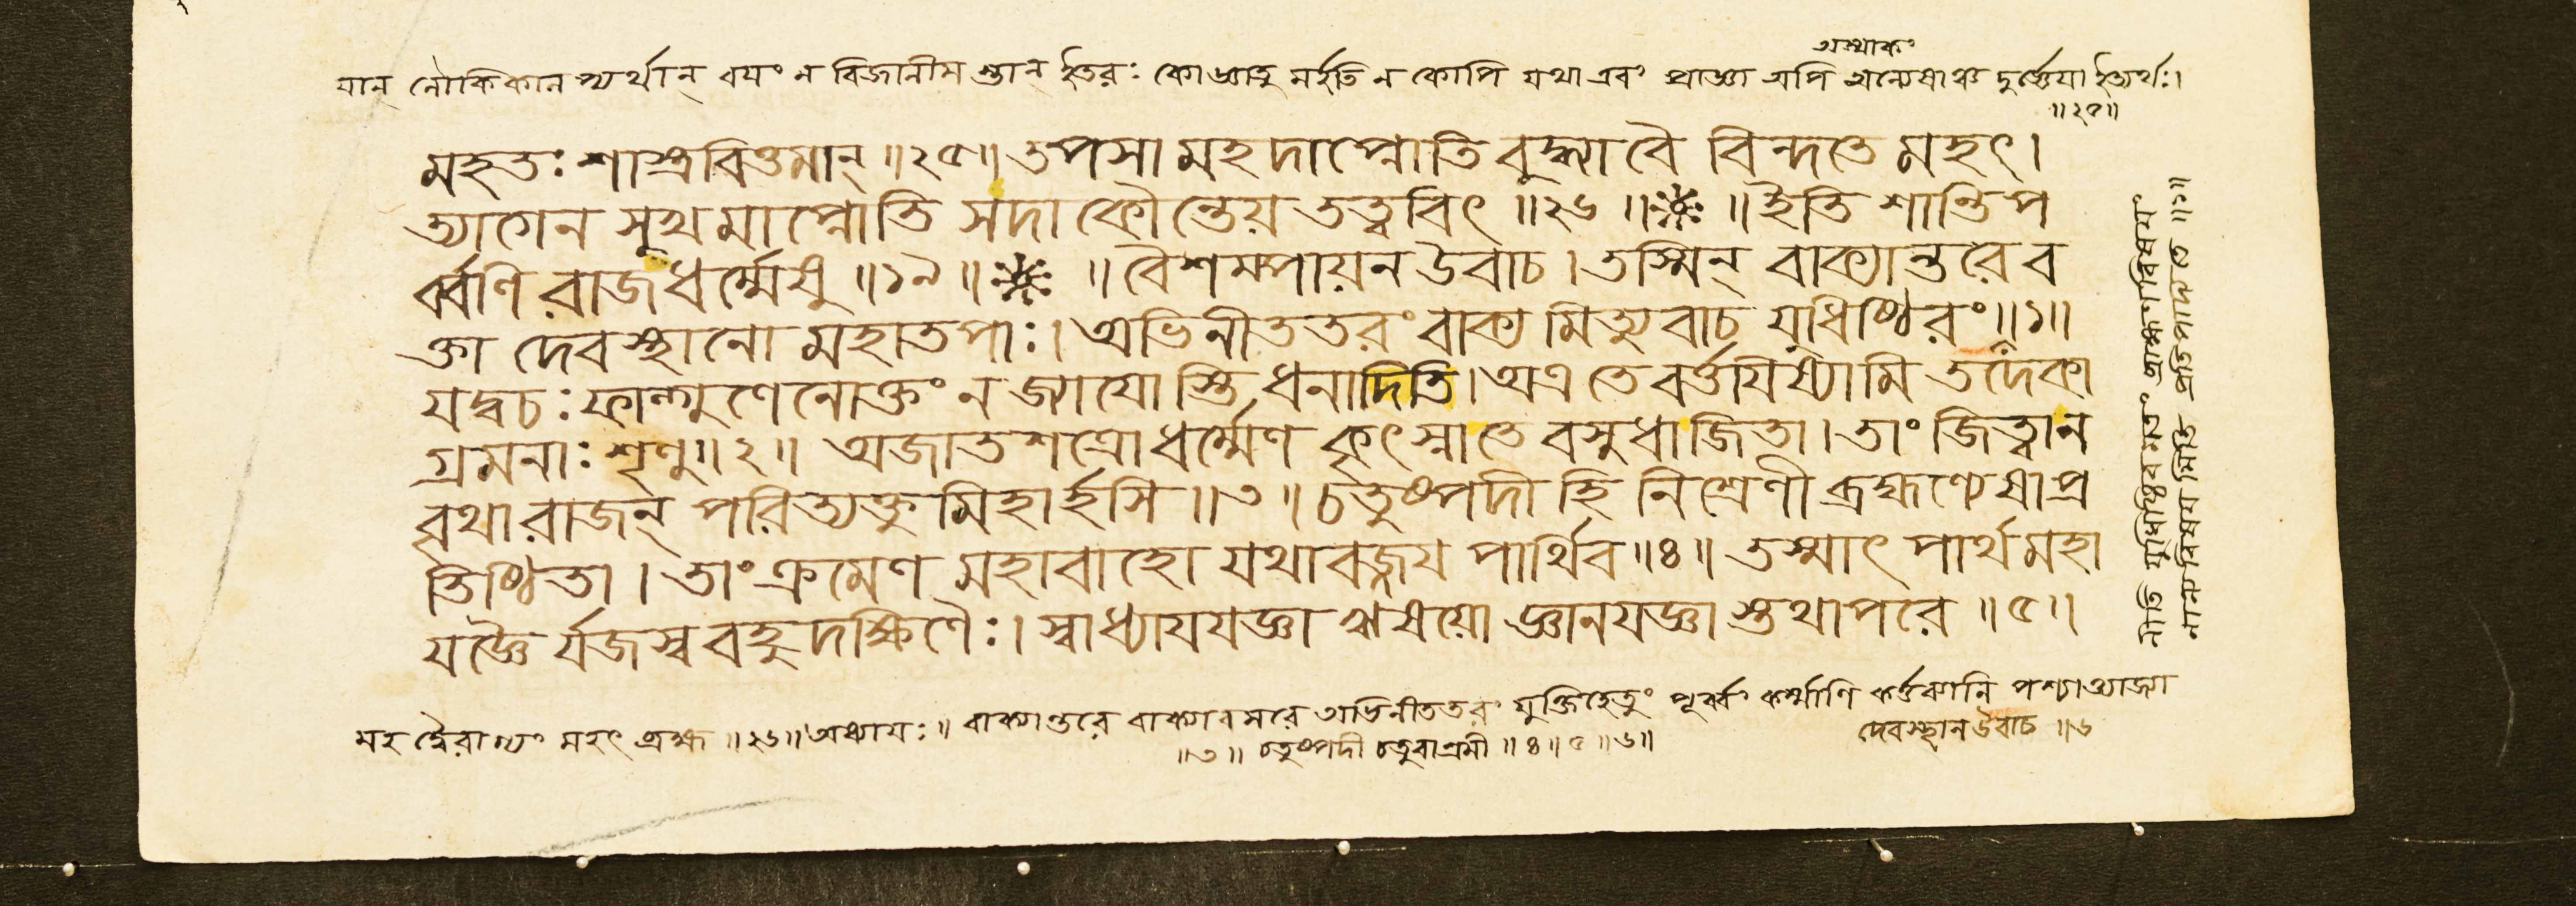 অস্মাকং
যান্ লৌকিকানপ্যর্থান্ বয়ং ন বিজানীমস্তান্ ইতরঃ কোজ্ঞাতুমর্হতি ন কোপি যথা এবং প্রাজ্ঞা অপি অন্যেষাঞ্চ দুর্জ্ঞেয়া ইত্যর্থঃ।
॥২৫॥
মহতঃ শাস্ত্রবিত্তমান্ ॥২৫॥ তপসা মহদাপ্নোতি বুদ্ধ্যা বৈ বিন্দতে মহৎ।
ত্যাগেন সুখমাপ্নোতি সদা কৌন্তেয় তত্ত্ববিৎ ॥২৬॥ ॥ ইতি শান্তিপ
র্ব্বণি রাজধর্ম্মেষু ॥১৯॥ ॥ বৈশম্পায়ন উবাচ। তস্মিন্ বাক্যান্তরে ব
ক্তা দেবস্থানো মহাতপাঃ। অভিনীততরং বাক্যমিত্যুবাচ যুধিষ্ঠিরং॥১॥
যদ্বচঃ ফাল্গুণেনোক্তং ন জ্যাযোস্তি ধনাদিতি। অত্র তে বর্ত্তযিষ্যামি তদেকা
গ্রমনাঃ শৃণু॥২॥ অজাতশত্রো ধর্ম্মেণ কৃৎস্না তে বসুধা জিতা। তাং জিত্বা ন
বৃথা রাজন্ পরিত্যক্তুমিহার্হসি ॥৩॥ চতুষ্পদী হি নিশ্রেণী ব্রহ্মণ্যেষা প্র
তিষ্ঠিতা। তাং ক্রমেণ মহাবাহো যথাবজ্জয পার্থিব ॥৪॥ তস্মাৎ পার্থ মহা
যজ্ঞৈ র্যজস্ব বহুদক্ষিণৈঃ। স্বাধ্যাযযজ্ঞা ঋষয়ো জ্ঞানযজ্ঞাস্তথাপরে ॥৫॥
মহদ্বৈরাগ্যং মহৎ ব্রহ্ম ॥২৬॥ অধ্যায়ঃ॥ বাক্যান্তরে বাক্যাবসরে অভিনীততরং যুক্তিহেতুং পূর্ব্বং কর্ম্মাণি
॥৩॥ চতুষ্পদী চতুরাশ্রমী ॥৪॥৫॥৬॥
দেবস্থান উবাচ ॥৬
নীতি যুধিষ্ঠির
প্রতিপাদ্যতে ॥১॥